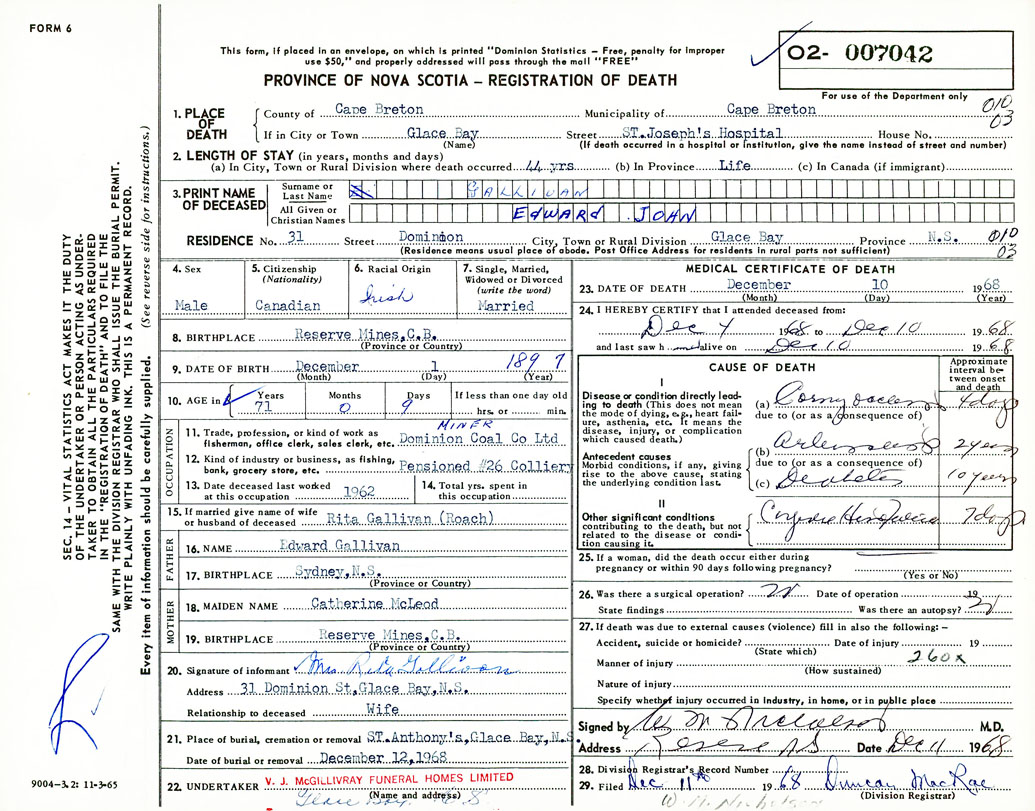 FORM 6
This form, if placed in an envelope, on which is printed "Dominion Statistics – Free, penalty for improper
use $50," and properly addressed will pass through the mail "FREE"
PROVINCE OF NOVA SCOTIA – REGISTRATION OF DEATH
02- 007042
For use of the Department only
010
03
1. PLACE OF DEATH
County of Cape Breton Municipality of Cape Breton
If in City or Town Glace Bay Street ST.Joseph's Hospital House No.
(Name) (If death occurred in a hospital or institution, give the name instead of street and number)
2. LENGTH OF STAY (in years, months and days)
(a) In City, Town or Rural Division where death occurred 44 yrs (b) In Province Life (c) In Canada (if immigrant)
3. PRINT NAME OF DECEASED
Surname or Last Name GALLIVAN
All Given or Christian Names EDWARD JOHN
RESIDENCE No. 31 Street Dominion City, Town or Rural Division Glace Bay Province N.S. 010
03
(Residence means usual place of abode. Post Office Address for residents in rural parts not sufficient)
4. Sex
Male
5. Citizenship
(Nationality)
Canadian
6. Racial Origin
Irish
7. Single, Married,
Widowed or Divorced
(write the word)
Married
8. BIRTHPLACE Reserve Mines,C.B.
(Province or Country)
9. DATE OF BIRTH December 1 1897
(Month) (Day) (Year)
10. AGE in
Years 71
Months 0
Days 9
If less than one day old
hrs. or min.
OCCUPATION
MINER
11. Trade, profession, or kind of work as
fisherman, office clerk, sales clerk, etc. Dominion Coal Co Ltd
12. Kind of industry or business, as fishing,
bank, grocery store, etc. Pensioned #26 Colliery
13. Date deceased last worked
at this occupation 1962
14. Total yrs. spent in
this occupation
15. If married give name of wife
or husband of deceased Rita Gallivan (Roach)
FATHER
16. NAME Edward Gallivan
17. BIRTHPLACE Sydney,N.S.
(Province or Country)
MOTHER
18. MAIDEN NAME Catherine McLeod
19. BIRTHPLACE Reserve Mines,C.B.
(Province or Country)
20. Signature of informant Mrs Rita Gallivan
Address 31 Dominion St,Glace Bay,N.S.
Relationship to deceased Wife
21. Place of burial, cremation or removal ST.Anthony's,Glace Bay,N.S.
Date of burial or removal December 12,1968
22. UNDERTAKER V. J. McGILLIVRAY FUNERAL HOMES LIMITED
(Name and address)
Glace Bay N.S.
MEDICAL CERTIFICATE OF DEATH
23. DATE OF DEATH December 10 1968
(Month) (Day) (Year)
24. I HEREBY CERTIFY that I attended deceased from:
Dec 4 1968 to Dec 10 1968
and last saw h im alive on Dec 10 1968
CAUSE OF DEATH
Approximate interval between onset and death
I
Disease or condition directly leading to death (This does not mean
the mode of dying, e.g., heart failure, asthenia, etc. It means the
disease, injury, or complication
which caused death.)
(a) 4 days
due to (or as a consequence of)
Antecedent causes
Morbid conditions, if any, giving
rise to the above cause, stating
the underlying condition last.
(b) 2 years
due to (or as a consequence of)
(c) Diabetes 10 years
II
Other significant conditions
contributing to the death, but not
related to the disease or condition causing it.
7 days
25. If a woman, did the death occur either during
pregnancy or within 90 days following pregnancy?
(Yes or No)
26. Was there a surgical operation? Date of operation 19
State findings Was there an autopsy?
27. If death was due to external causes (violence) fill in also the following: –
Accident, suicide or homicide? Date of injury 19
(State which)
260x
Manner of injury
(How sustained)
Nature of injury
Specify whether injury occurred in industry, in home, or in public place
Signed by M.D.
Address Reserve NS Date Dec 11 1968
28. Division Registrar's Record Number
29. Filed Dec 11th 1968 Duncan MacRae
(Division Registrar)
SEC. 14 – VITAL STATISTICS ACT MAKES IT THE DUTY
OF THE UNDERTAKER OR PERSON ACTING AS UNDER-
TAKER TO OBTAIN ALL THE PARTICULARS REQUIRED
IN THE "REGISTRATION OF DEATH" AND TO FILE THE
SAME WITH THE DIVISION REGISTRAR WHO SHALL ISSUE THE BURIAL PERMIT.
WRITE PLAINLY WITH UNFADING INK. THIS IS A PERMANENT RECORD.
Every item of information should be carefully supplied. (See reverse side for instructions.)
9004–3.2: 11-3-65